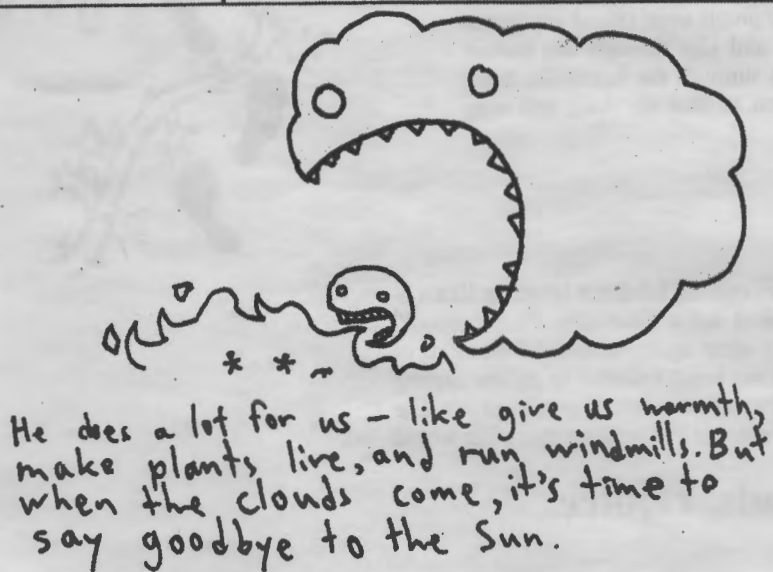 He does a lot for us – like give us warmth,
make plants live, and run windmills. But
when the clouds come, it's time to
say goodbye to the Sun.